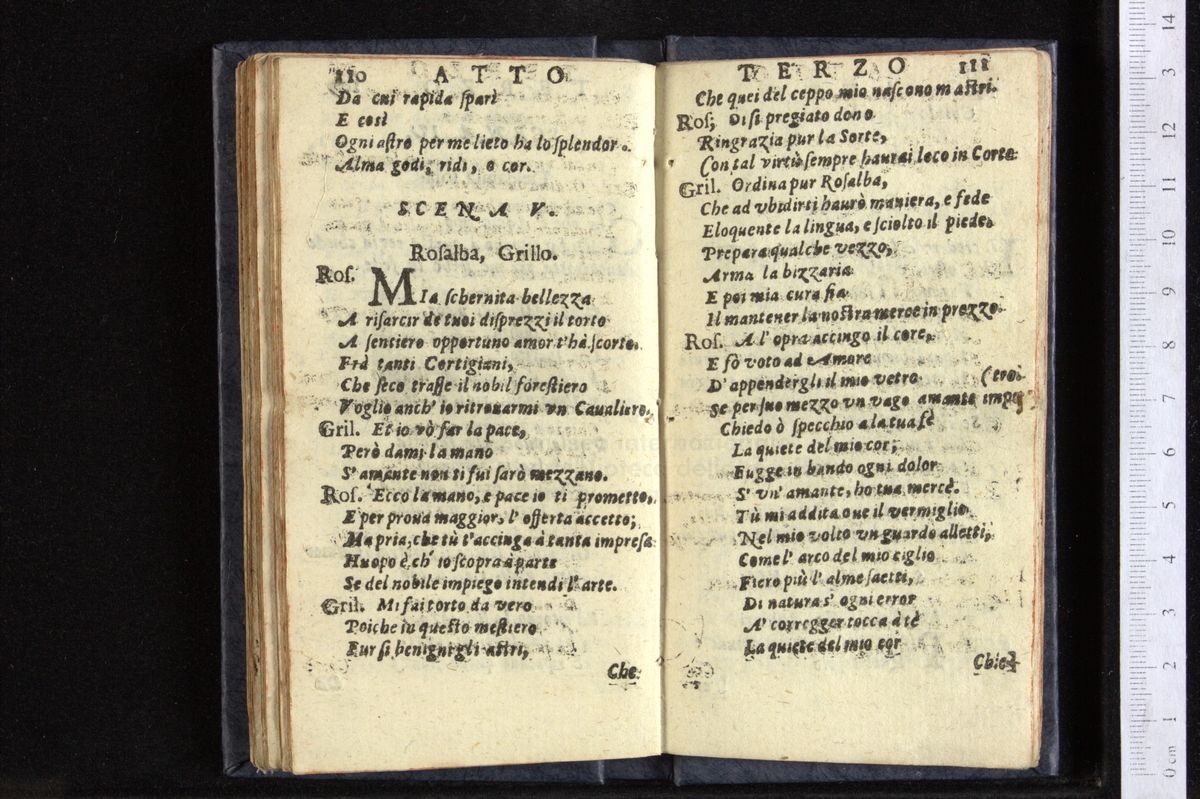 110 ATTO
Da cui rapida sparì
E così
Ogni astro per me lieto ha lo splendor.
Alma godi, ridi, o cor.
SCENA V.
Rosalba, Grillo.
Ros. MIa schernita bellezza
A risarcir de tuoi disprezzi il torto
A sentiero opportuno amor t'hà scorto.
Frà tanti Cortigiani,
Che seco trasse il nobil forestiero
Voglio anch' io ritrouarmi vn Caualiere.
Gril. Et io vò far la pace,
Però dami la mano
S'amante non ti fui sarò mezzano.
Ros. Ecco la mano, e pace io ti prometto,
E per proua maggior, l' offerta accetto;
Ma pria, che tù t'accinga à tanta impresa
Huopo è, ch' io scopra à parte
Se del nobile impiego intendi l' arte.
Gril. Mi fai torto da vero
Poiche in questo mestiero
Fur sì benigni gli astri,
Che
TERZO 111
Che quei del ceppo mio nascono mastri.
Ros; Di sì pregiato dono
Ringrazia pur la Sorte,
Con tal virtù sempre haurai loco in Corte
Gril. Ordina pur Rosalba,
Che ad vbidirti haurò maniera, e fede
Eloquente la lingua, e sciolto il piede.
Prepara qualche vezzo,
Arma la bizzaria
E poi mia cura fia
Il mantener la nostra merce in prezzo.
Ros. A l' opra accingo il core,
E fò voto ad Amore
D' appendergli il mio vetro (tro.
Se per suo mezzo vn vago amante impe
Chiedo ò specchio a la tua fè
La quiete del mio cor;
Fugge in bando ogni dolor
S' vn' amante, ho tua mercè.
Tù mi addita oue il vermiglio
Nel mio volto vn guardo alletti,
Come l' arco del mio ciglio
Fiero più l' alme saetti,
Di natura s' ogni error
A' corregger tocca à tè
La quiete del mio cor
Chie-
0 cm 1 2 3 4 5 6 7 8 9 10 11 12 3 14